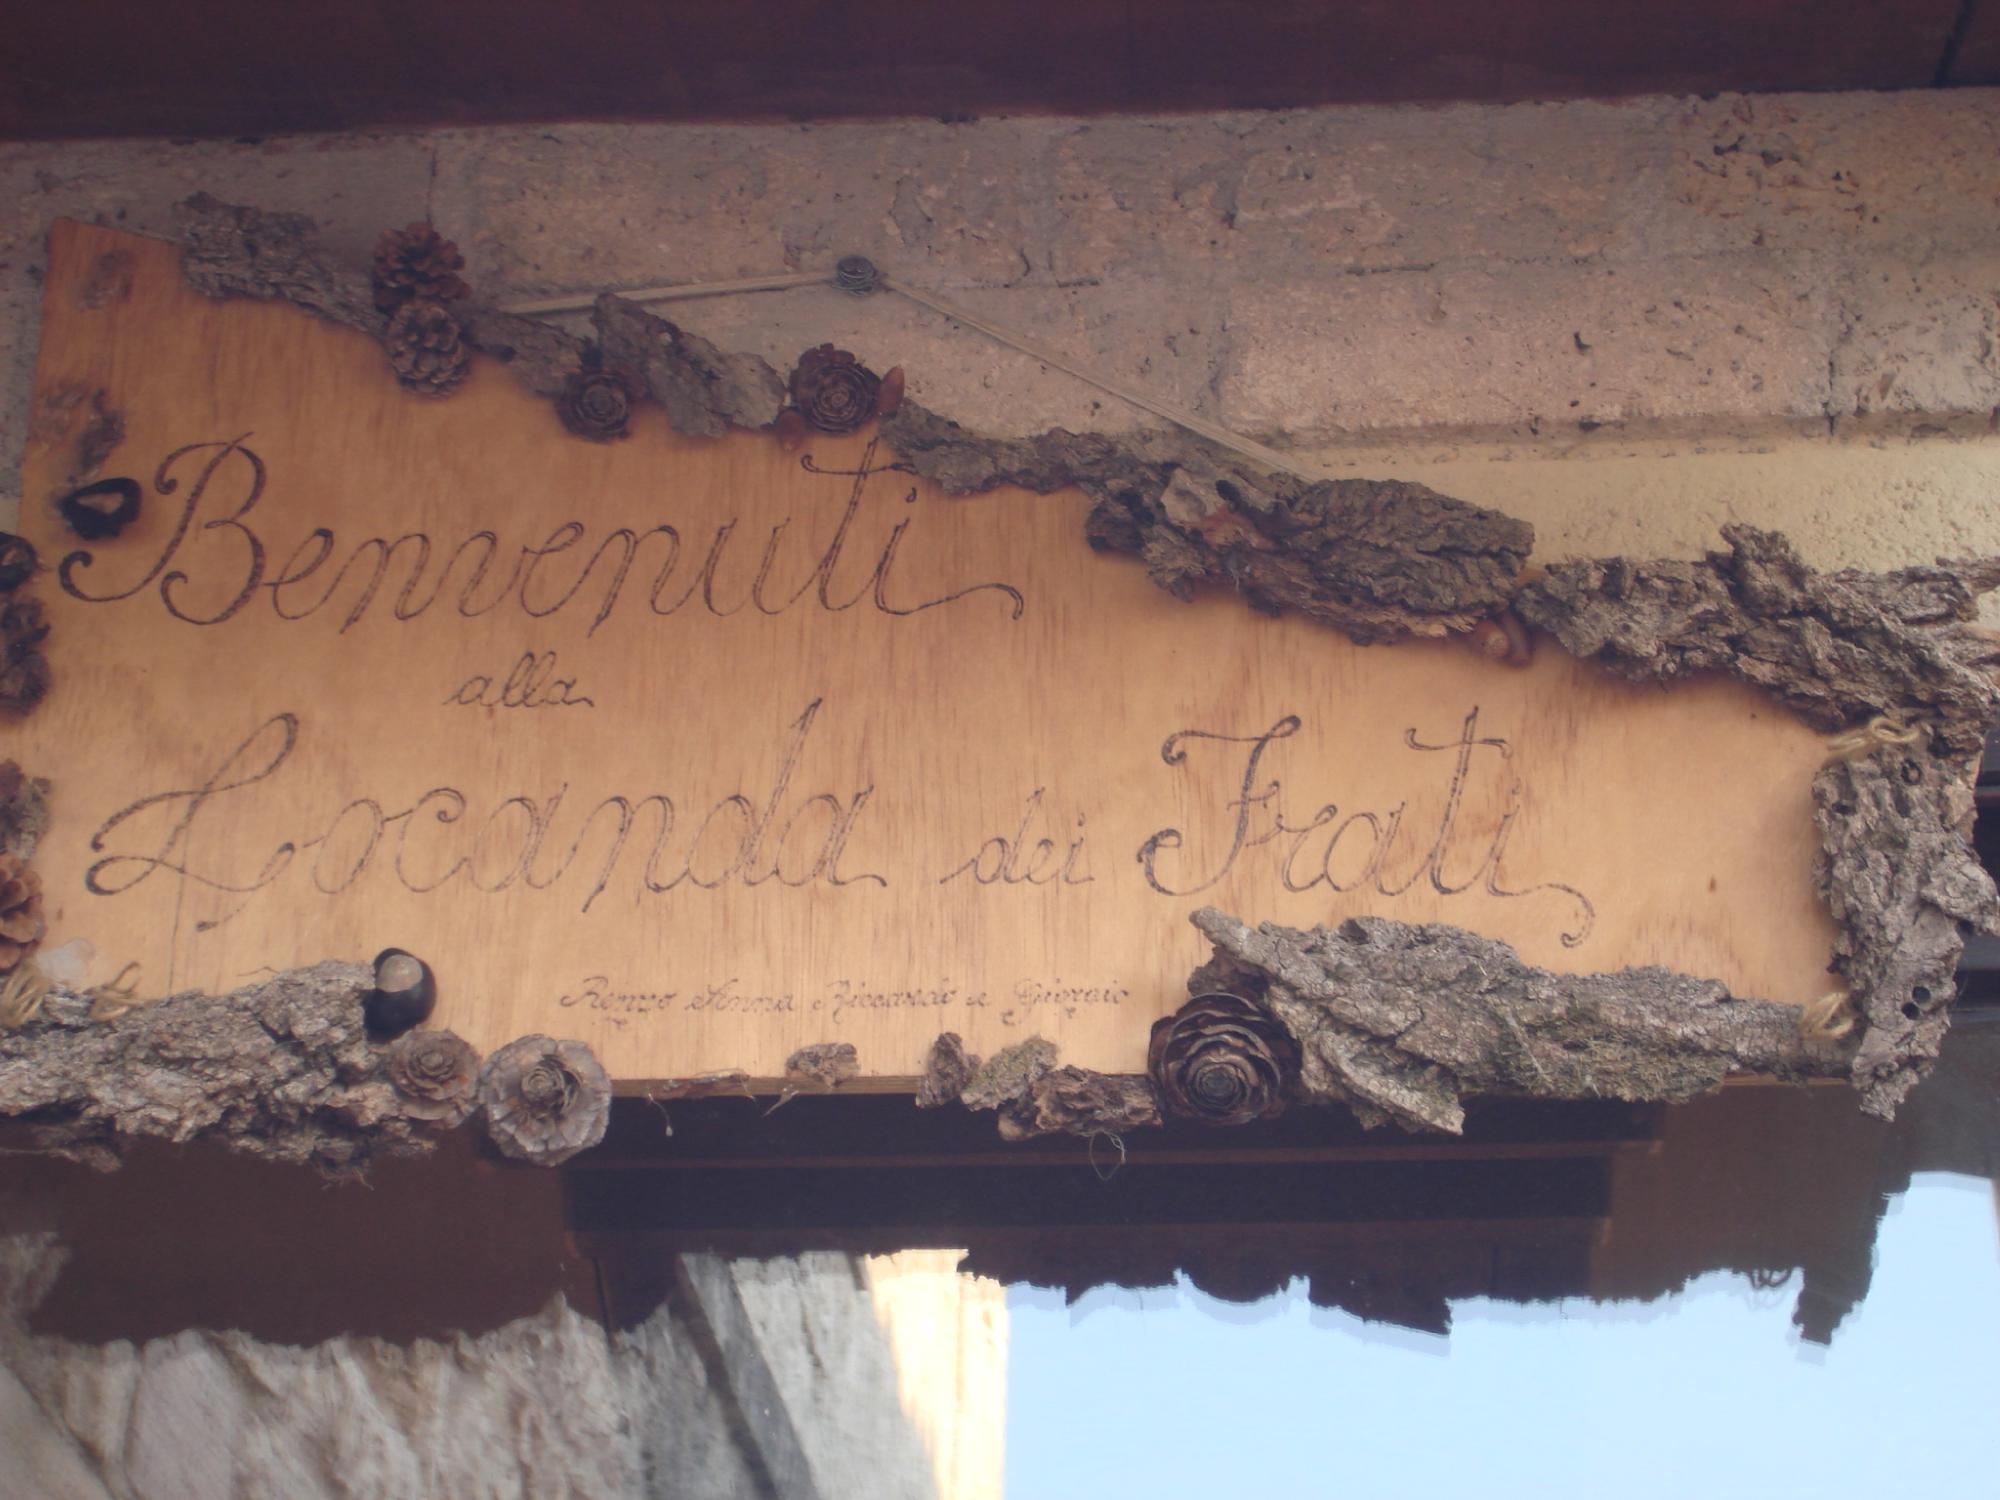 Benvenuti
alla
Locanda dei Frati
Renzo Anna Riccardo e Giorgio